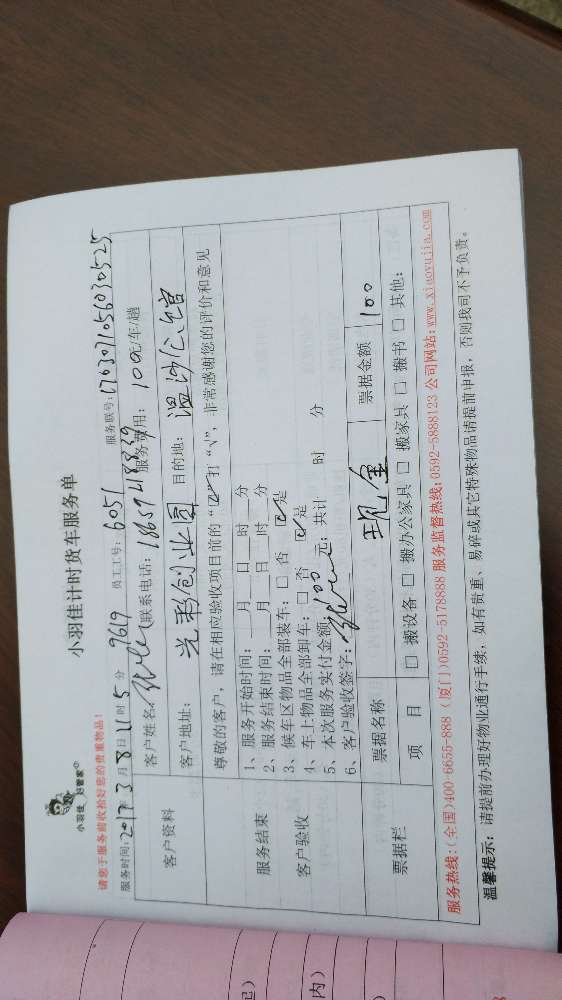 小羽佳 好管家
小羽佳计时货车服务单
请您于服务前收拾好您的贵重物品！
服务时间：2017年3月8日11时5分 9619 员工工号：6051 服务联号：170307105603052 5
客户资料
客户姓名： 联系电话：18659418839 服务费用：100元/车/趟
客户地址：光彩创业园 目的地：温沙公馆
尊敬的客户，请在相应验收项目前的“□”打“√”，非常感谢您的评价和意见
服务结束
客户验收
1、服务开始时间：____月____日____时____分
2、服务结束时间：____月____日____时____分
3、候车区物品全部装车：□ 否 ☑是
4、车上物品全部卸车：□ 否 ☑是
5、本次服务实付金额：100元；共计 时 分
6、客户验收签字：
票据栏
票据名称 现金 票据金额 100
项 目 □ 搬设备 □ 搬办公家具 □ 搬家具 □ 搬书 □ 其他：
服务热线：(全国)400-6655-888 (厦门)0592-5178888 服务监督热线：0592-5888123 公司网站：www.xiaoyujia.com
温馨提示：请提前办理好物业通行手续，如有贵重、易碎或其它特殊物品请提前申报，否则我司不予负责。
内）